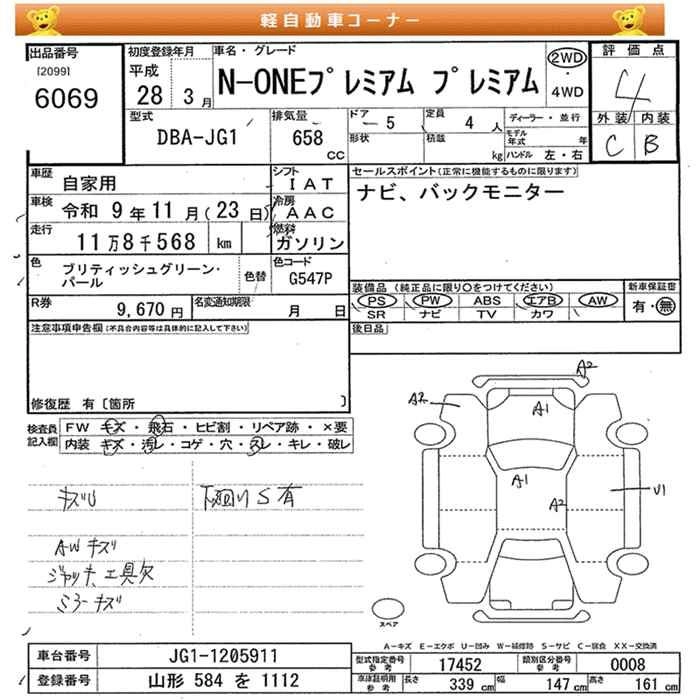 軽自動車コーナー
出品番号
[2099]
6069
初度登録年月
平成
28 3月
車名・グレード
N-ONEプレミアム プレミアム
2WD
・
4WD
評価点
4
外装 内装
C B
型式
DBA-JG1
排気量
658
cc
ドア 5
形状
定員 4 人
積載 kg
ディーラー・並行
モデル年式 年
ハンドル 左・右
車歴
自家用
シフト
IAT
車検
令和 9年11月(23日)
冷房
AAC
走行
11万8千568 km
燃料
ガソリン
色
ブリティッシュグリーン・
パール
色替
色コード
G547P
セールスポイント(正常に機能するものに限ります)
ナビ、バックモニター
装備品 (純正品に限り○をつけてください)
PS PW ABS エアB AW
SR ナビ TV カワ
新車保証書
有・無
R券
9,670円
名変通知期限
月 日
後日品
注意事項申告欄(不具合内容等は具体的に記入して下さい)
修復歴 有〔箇所 〕
検査員
記入欄
FW キズ・飛石・ヒビ割・リペア跡・×要
内装 キズ・汚レ・コゲ・穴・スレ・キレ・破レ
キズU
下廻りS有
AWキズ
ジャッキ、工具欠
ミラーキズ
A2
A2
A1
A1
A2
U1
スペア
A-キズ E-エクボ U-凹み W-補修跡 S-サビ C-腐食 XX-交換済
車台番号
JG1-1205911
登録番号
山形 584 を 1112
型式指定番号
参考
17452
類別区分番号
参考
0008
車庫証明用
参考
長さ 339 cm
幅 147 cm
高さ 161 cm